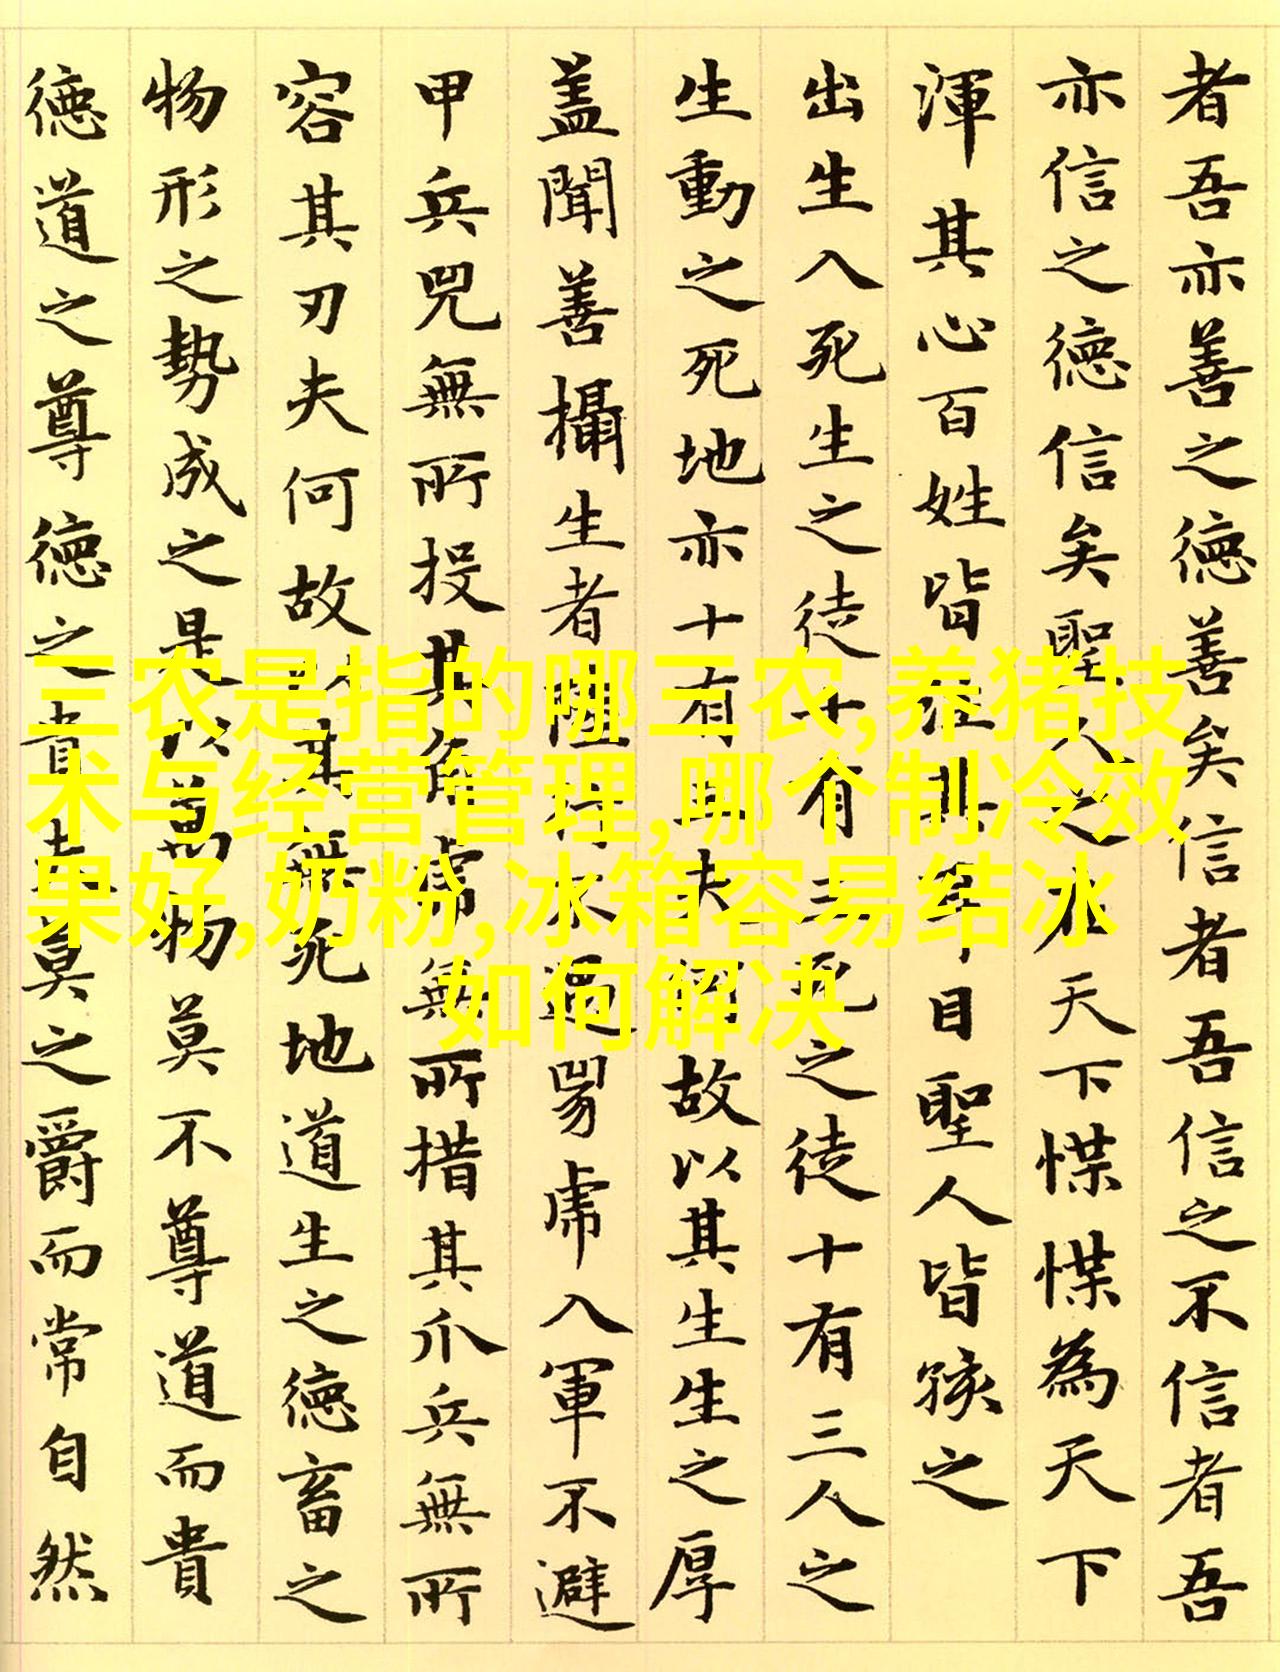 者吾亦善之德善矣信者吾信之不信者吾
亦信之德信矣聖人之在天下惵惵為天下
渾其心百姓皆注其耳目聖人皆孩之
出生入死生之徒十有三死之徒十有三人之
生動之死地亦十有三夫何故以其生生之厚
蓋聞善攝生者陸行不遇兕虎入軍不避
甲兵兕無所投其角虎無所措其爪兵無所
容其刃夫何故以其無死地道生之德畜之
物形之勢成之是以萬物莫不尊道而貴
德道之尊德之貴夫莫之爵而常自然
三农是指的哪三农,养猪技
术与经营管理,哪个制冷效
果好,奶粉,冰箱容易结冰
如何解决